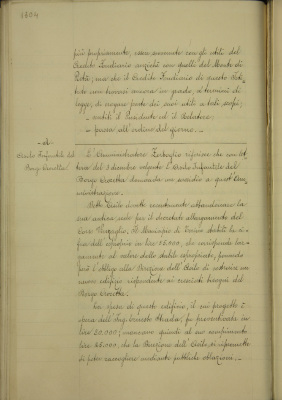 1304
più propriamente, essa secondo con gli utili del
Credito Fondiario anziché con quelli del Monte di
Pietà; ma che il Credito Fondiario di questo Isti-
tuto non trovasi ancora in grado, a termini di
legge, di erogare parte dei suoi utili a tali scopi;
udito il Presidente ed il Relatore,
passa all'ordine del giorno.
Asilo Infantile del
Borgo Crocetta
L'Amministratore riferisce che con let-
tera del 3 dicembre volgente l'Asilo Infantile del
Borgo Crocetta domanda un sussidio a quest'Am-
ministrazione.
Detto Asilo dovette recentemente abbandonare la
sua antica sede per il decretato allargamento del
Corso Vinzaglio. Il Municipio di Torino stabilì la ci-
fra dell'esproprio in lire 15,000, che corrisponde
al valore dello stabile espropriato, ponendo
però l'obbligo alla Direzione dell'Asilo di costruire un
nuovo edificio rispondente ai cresciuti bisogni del
Borgo Crocetta.
La spesa di questo edificio, il cui progetto è
opera dell'Ing. Ernesto, fu preventivata in
lire 50,000; mancano quindi al suo compimento
lire 35,000, che la Direzione dell'Asilo si ripromette
di poter raccogliere mediante pubbliche oblazioni.